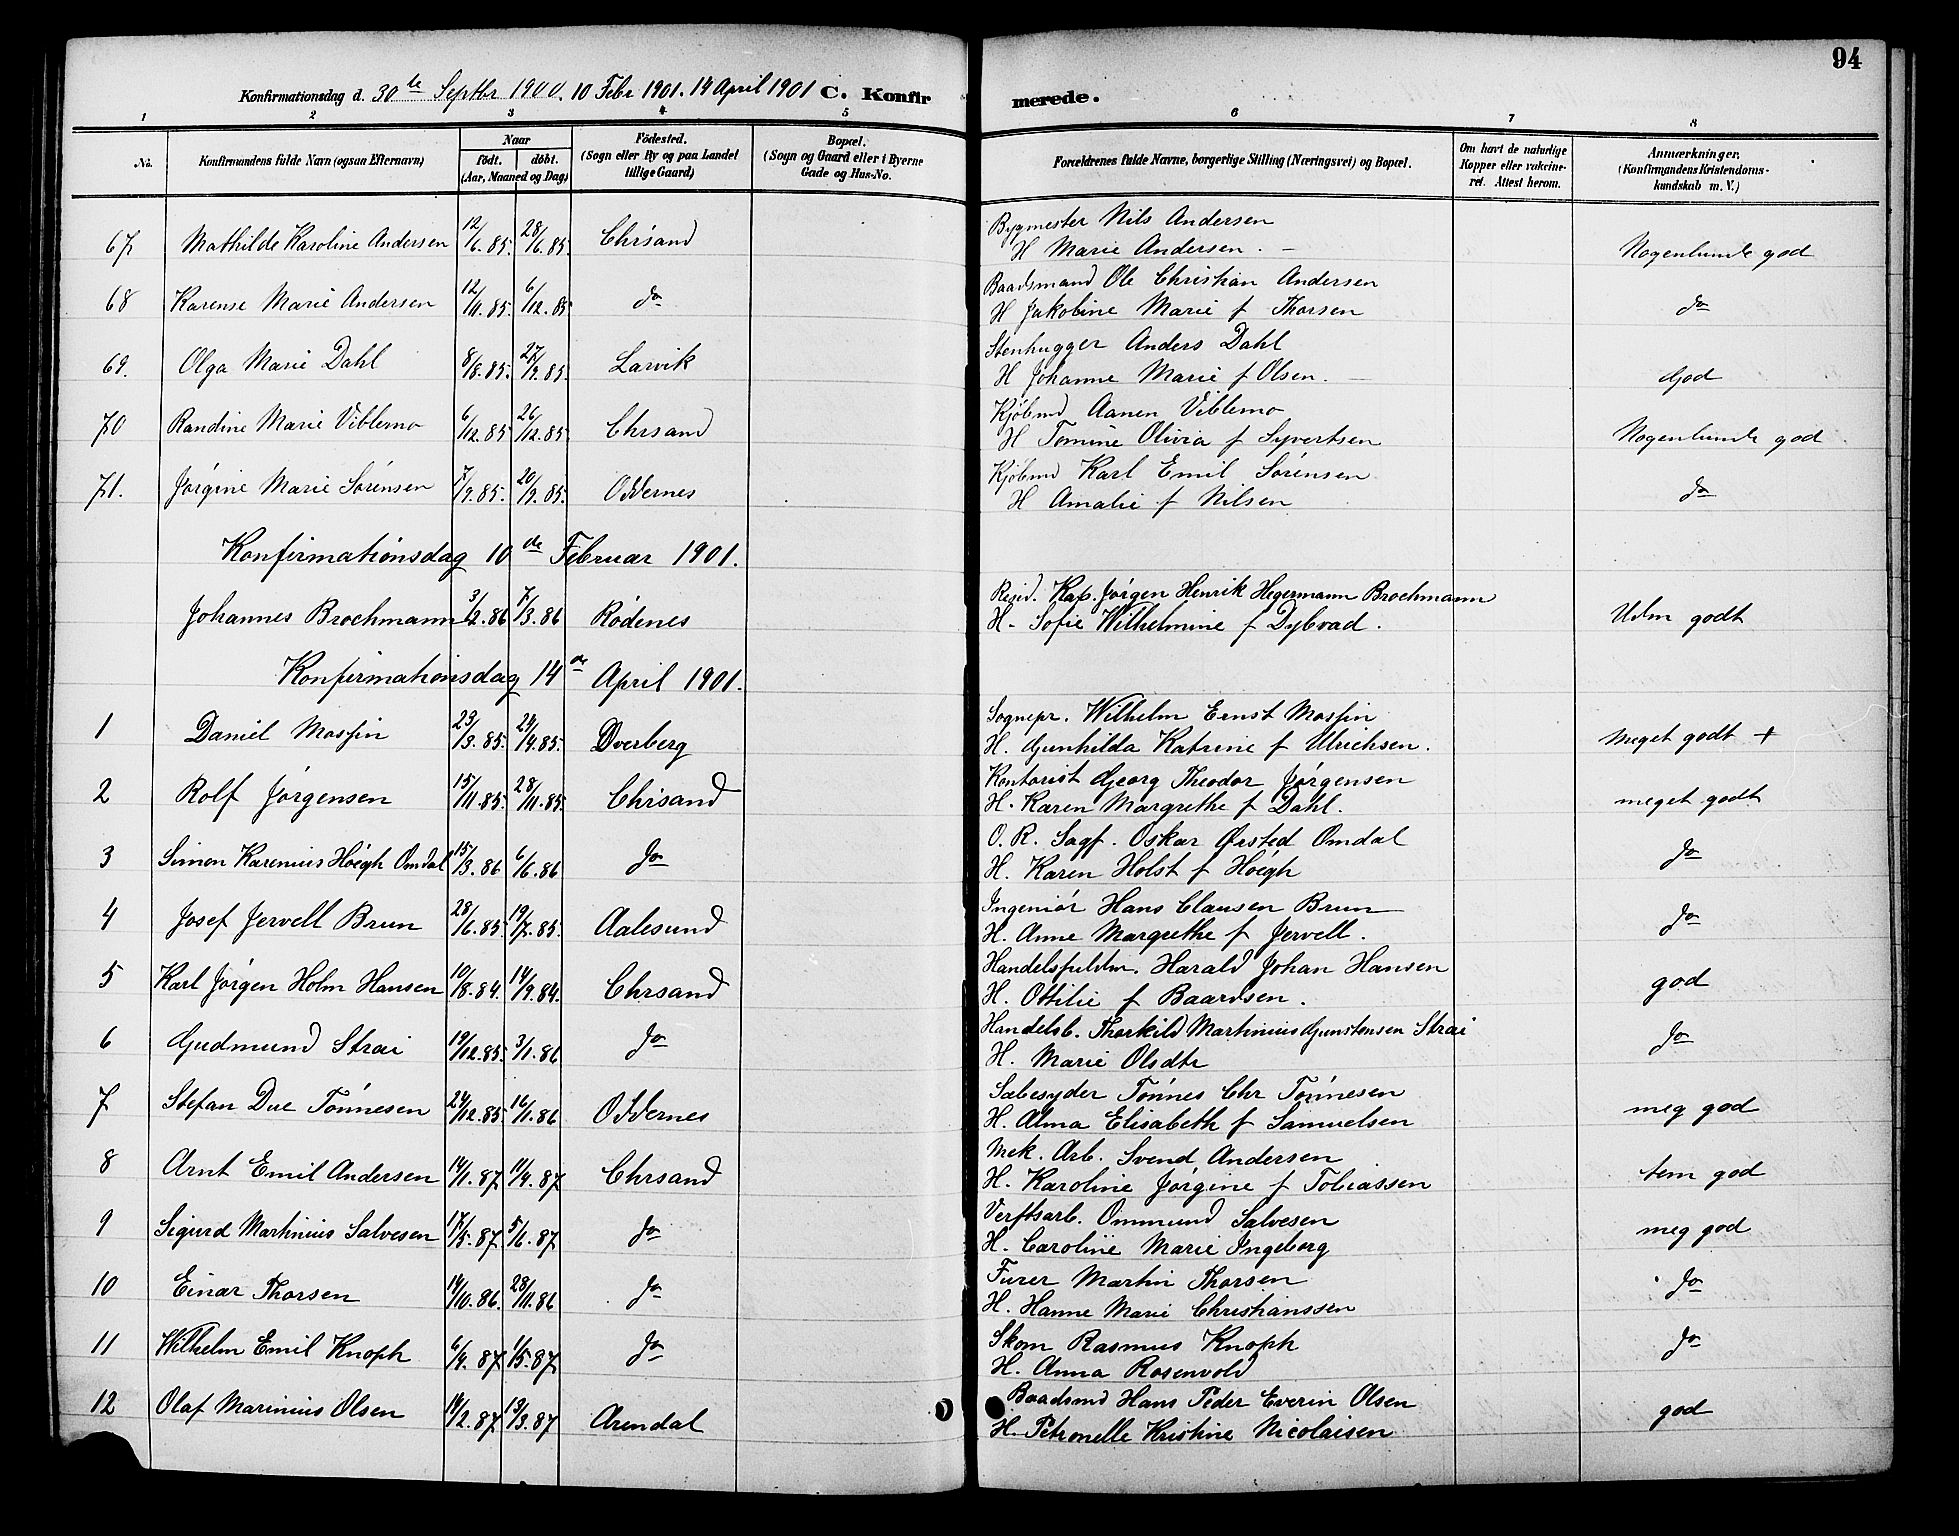 94
Konfirmationsdag d. 30te Septbr 1900. 10 Febr 1901. 14 April 1901 C. Konfirmerede.
1 2 3 4 5 6 7 8
No. Konfirmandens fulde Navn (ogsaa Efternavn) Naar født. døbt. (Aar, Maaned og Dag) Fødested. (Sogn eller By og paa Landet tillige Gaard) Bopæl. (Sogn og Gaard eller i Byerne Gade og Hus-No. Forældrenes fulde Navne, borgerlige Stilling (Næringsvei) og Bopæl. Om havt de naturlige Kopper eller vakcineret. Attest herom. Anmærkninger. (Konfirmandens Kristendomskundskab m. V.)
67 Mathilde Karoline Andersen 12/6.85. 28/6.85. Chrsand Bygmester Nils Andersen
H Marie Andersen. – Nogenlunde god
68 Karense Marie Andersen 12/11.85. 6/12.85 do Baadsmand Ole Christian Andersen
H Jakobine Marie f Thorsen do
69. Olga Marie Dahl 8/8.85. 27/9.85. Larvik Stenhugger Anders Dahl
H Johanne Marie f Olsen. – God
70 Randine Marie Viblemo 6/12.85 26/12.85 Chrsand Kjøbmd Aanen Viblemo
H Tomine Olivia f Syvertsen Nogenlunde god
71. Jørgine Marie Sørensen 7/9.85. 20/9.85. Oddernes Kjøbmd Karl Emil Sørensen
H Amalie f Nilsen do
Konfirmationsdag 10de Februar 1901.
Johannes Brochmann 3/2.86 7/3.86 Rødenes Resid. Kap. Jørgen Henrik Hegermann Brochmann
H. Sofie Wilhelmine f Dybvad. Udm godt
Konfirmationsdag 14de April 1901.
1 Daniel Mossin 23/3.85. 24/4.85. Dverberg Sognepr. Wilhelm Ernst Mossin
H. Gunhilda Katrine f Ulrichsen. Meget godt +
2 Rolf Jørgensen 15/11.85. 28/11.85. Chrsand Kontorist Georg Theodor Jørgensen
H. Karen Margrethe f Dahl. meget godt
3 Simon Karenius Høegh Omdal 15/3.86 6/6.86 do O. R. Sagf. Oskar Ørsted Omdal
H. Karen Holst f Høegh do
4 Josef Jervell Brun 28/6.85. 19/7.85. Aalesund Ingeniør Hans Clausen Brun
H. Anne Margrethe f Jervell. do
5 Karl Jørgen Holm Hansen 10/8.84. 14/9.84. Chrsand Handelsfuldm. Harald Johan Hansen
H. Ottilie f Baardsen. god
6 Gudmund Strai 19/12.85. 3/1.86 do Handelsb. Thorkild Martinius Gunstensen Strai
H. Marie Olsdtr do
7 Stefan Due Tønnesen 24/12.85. 16/1.86 Oddernes Sæbesyder Tønnes Chr Tønnesen
H. Alma Elisabeth f Samuelsen meg god
8 Arnt Emil Andersen 14/1.87 11/4.87 Chrsand Mek. Arb. Svend Andersen
H. Karoline Jørgine f Tobiassen tem god
9 Sigurd Martinius Salvesen 17/5.87. 5/6.87 do Verftsarb. Ommund Salvesen
H. Caroline Marie Ingeborg meg god
10 Einar Thorsen 14/10.86. 28/11.86 do Furer Martin Thorsen
H. Hanne Marie Christianssen do
11 Wilhelm Emil Knoph 6/4.87 1/5.87 do Skom Rasmus Knoph
H. Anna Rosenvold do
12 Olaf Marinius Olsen 14/2.87 13/3.87 Arendal Baadsmd Hans Peder Everin Olsen
H. Petronelle Kristine Nicolaisen god